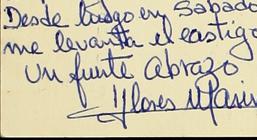 Desde luego en Sabado
me levanta el castigo
Un fuerte abrazo
Flores Maris